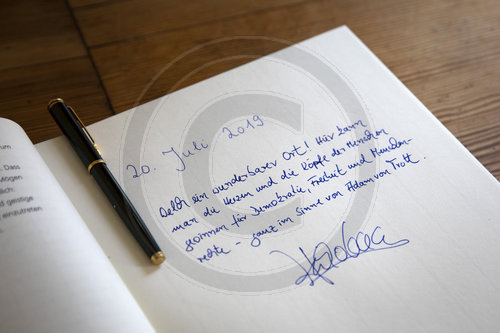 um
. Dass
Mögen
lich.
d geistige
einzutreten
20. Juli 2019
ein wunderbarer Ort! Hier kann
man die Herzen und die Köpfe der Menschen
gewinnen für Demokratie, Freiheit und Menschen-
rechte - ganz im Sinne von Adam von Trott.